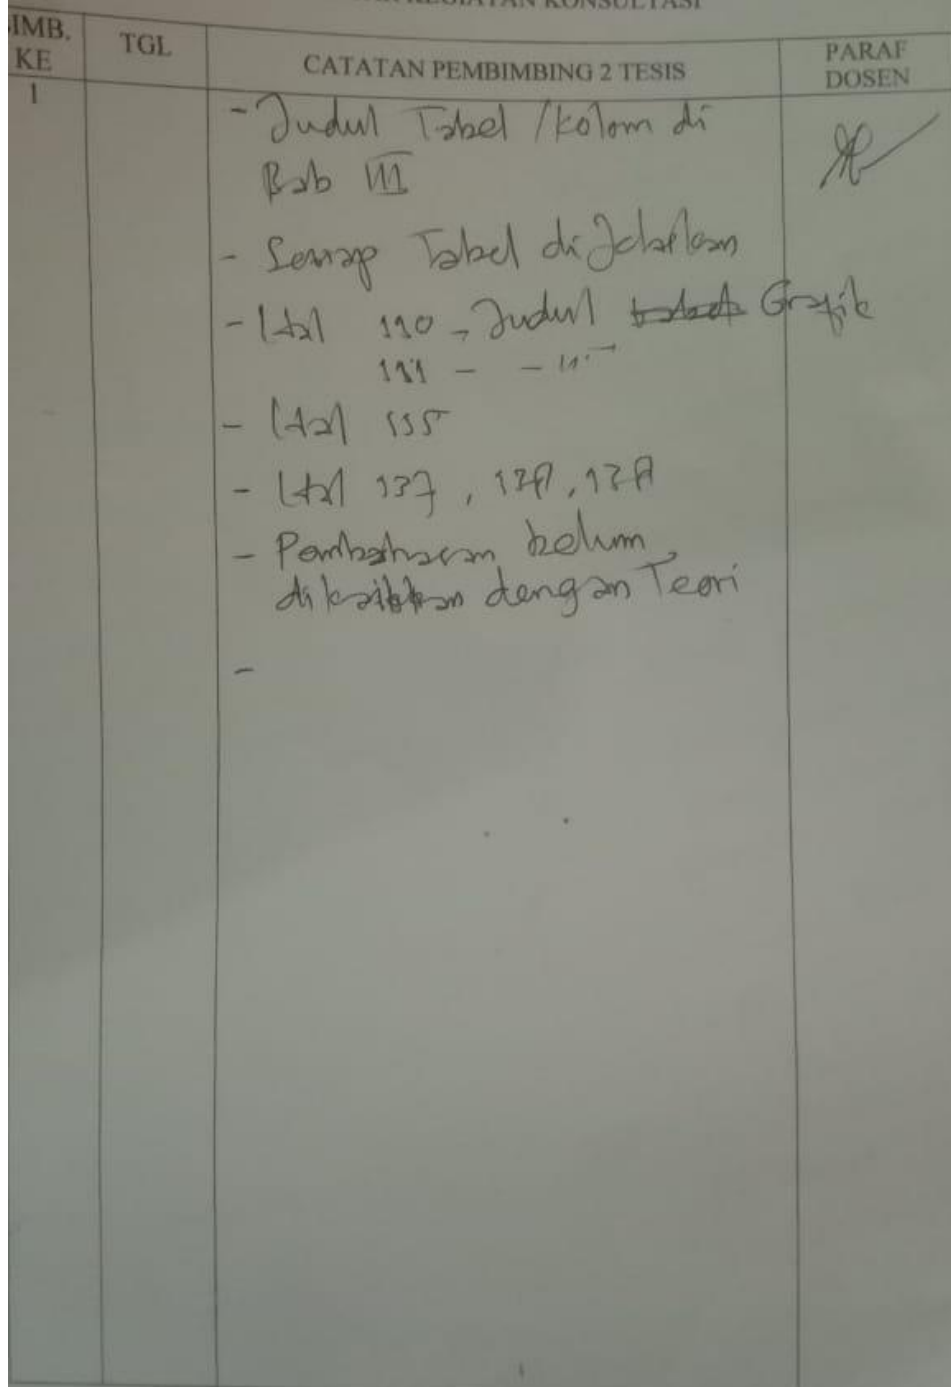 KEGIATAN KONSULTASI
IMB. KE
TGL
CATATAN PEMBIMBING 2 TESIS
PARAF DOSEN
1
- Judul Tabel / Kolom di
Bab III
- Setiap Tabel di Jelaskan
- Hal 110 - Judul Grafik
111 - - 11 -
- Hal 115
- Hal 137, 138, 138
- Pembahasan belum
dikaitkan dengan Teori
-